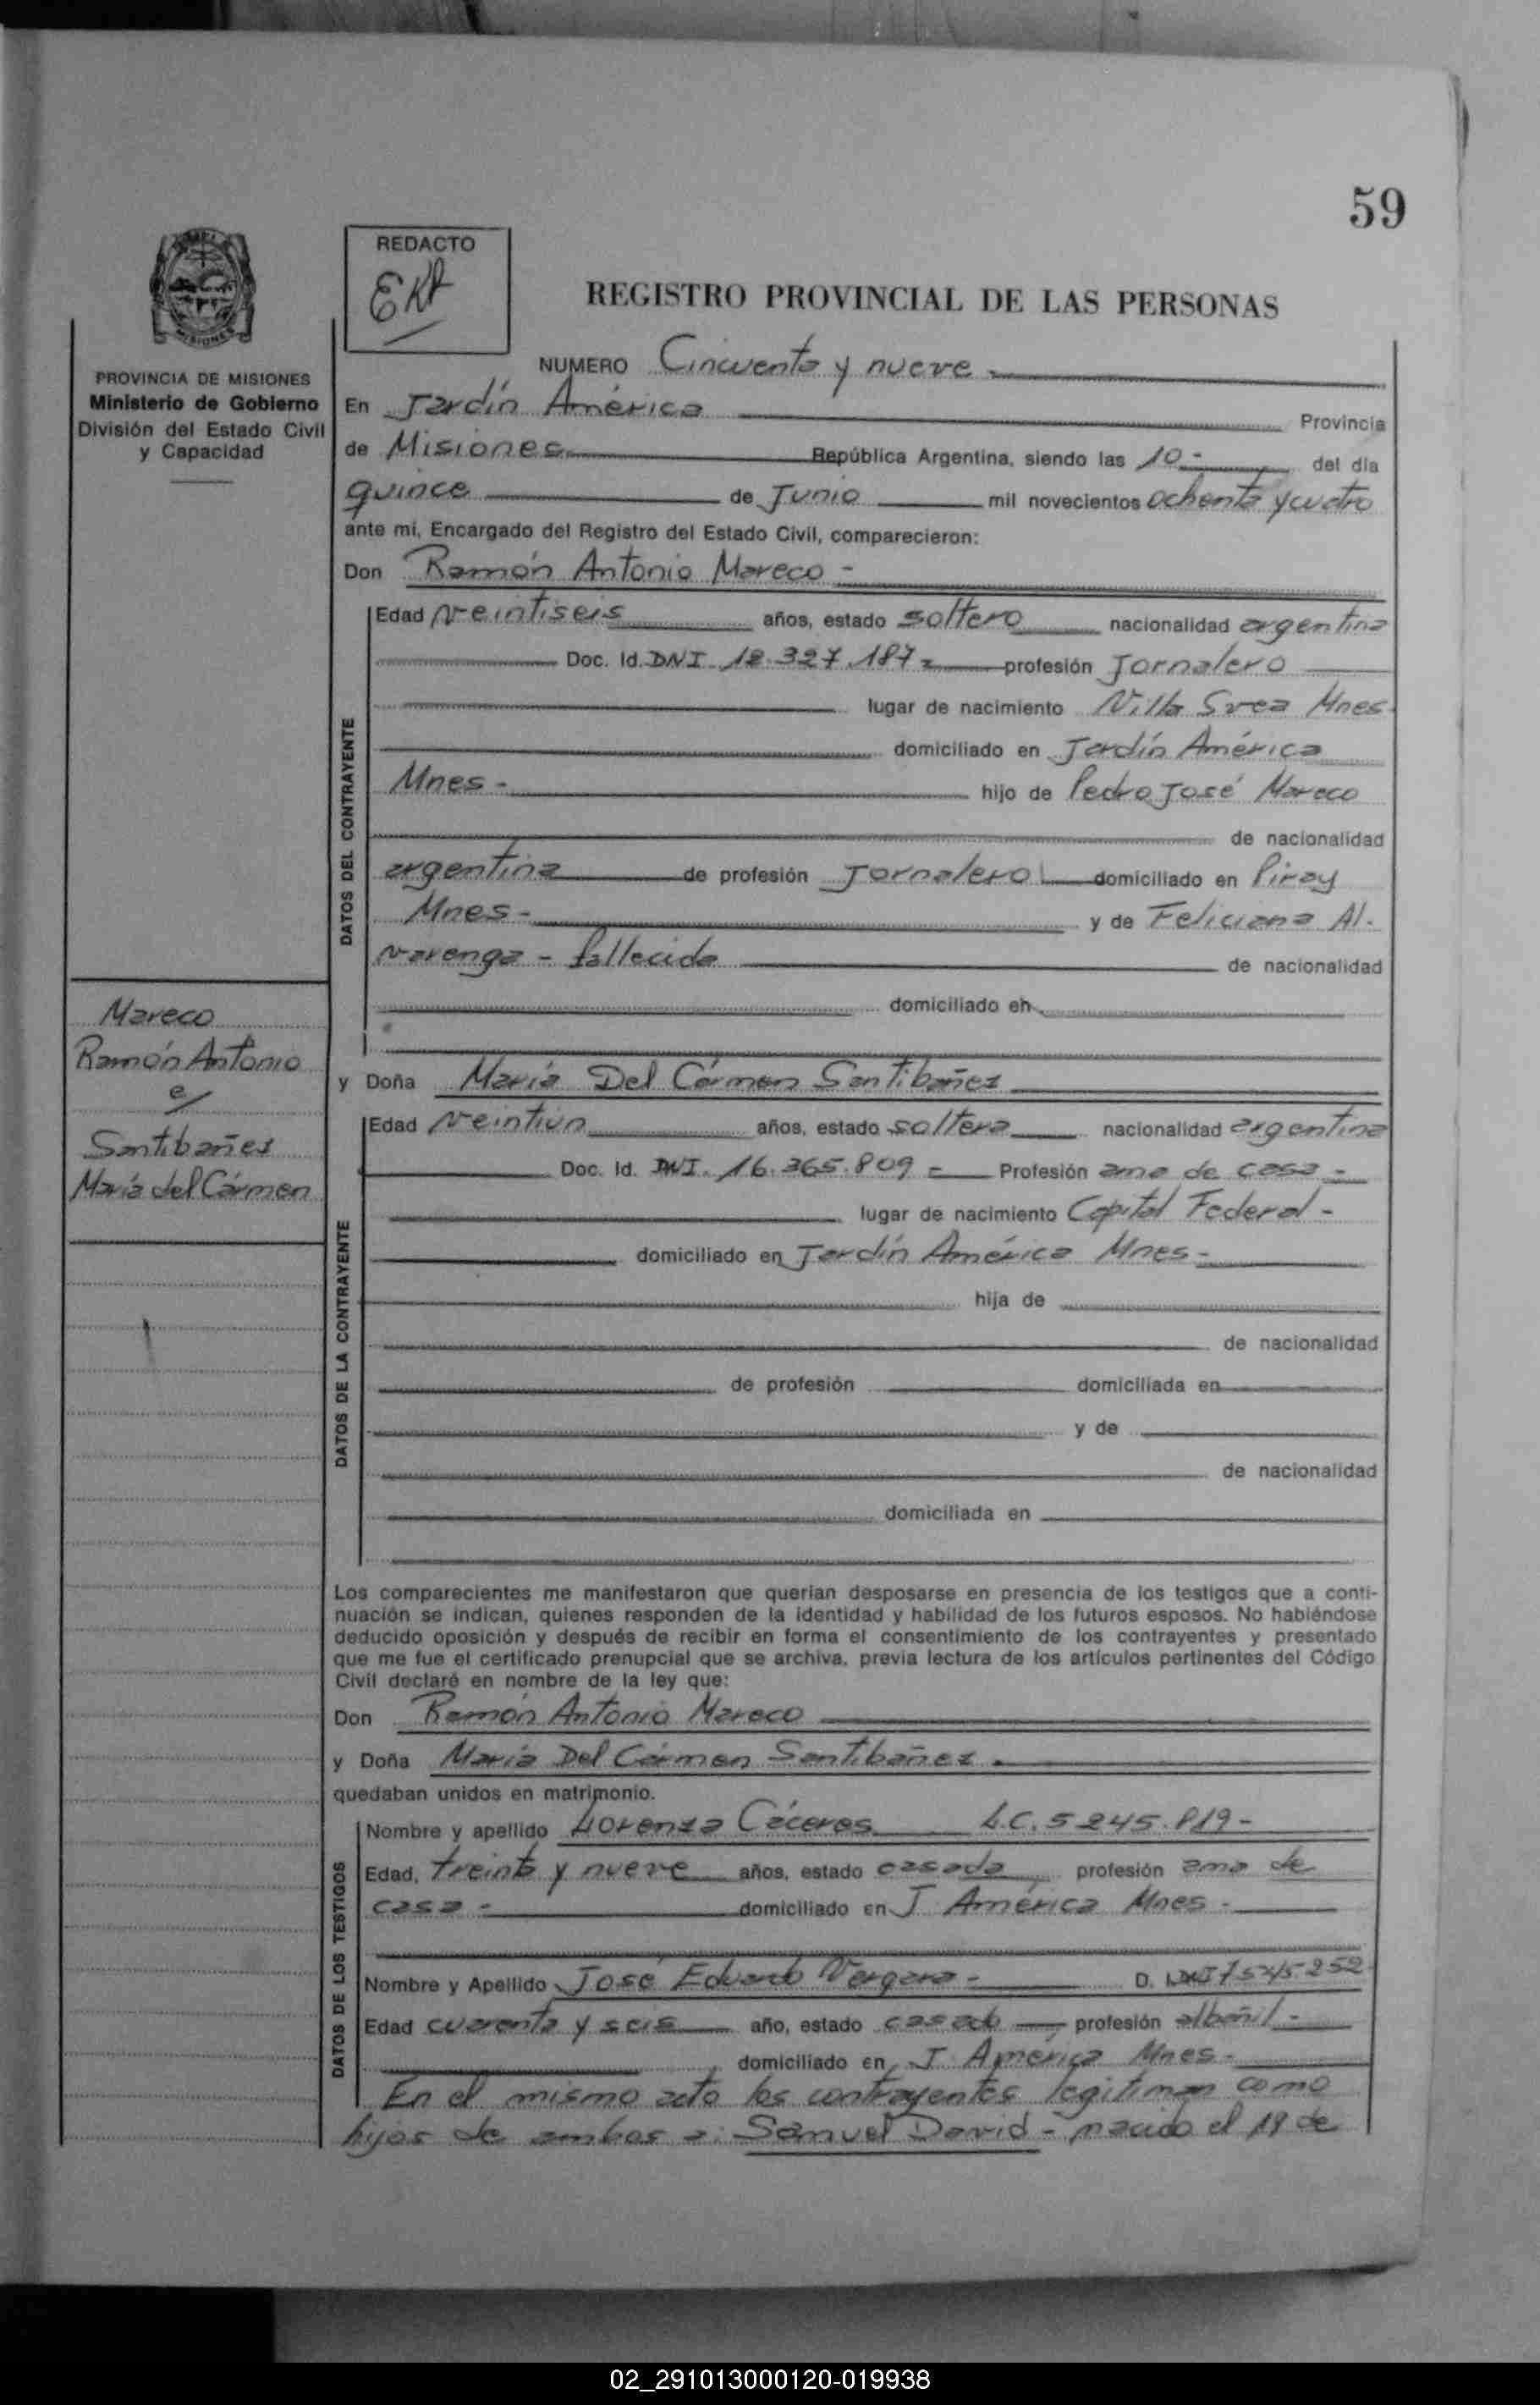 59
REDACTO
REGISTRO PROVINCIAL DE LAS PERSONAS
MISIONES
PROVINCIA DE MISIONES
Ministerio de Gobierno
División del Estado Civil
y Capacidad
NUMERO Cincuenta y nueve
En Jardín América Provincia
de Misiones República Argentina, siendo las 10 - del día
quince de Junio mil novecientos ochenta y cuatro
ante mí, Encargado del Registro del Estado Civil, comparecieron:
Don Ramón Antonio Mareco -
DATOS DEL CONTRAYENTE
Edad veintiseis años, estado soltero nacionalidad argentina
Doc. Id. DNI 12.327.187 - profesión Jornalero
lugar de nacimiento Villa Svea Mnes.
domiciliado en Jardín América
Mnes - hijo de Pedro José Mareco
de nacionalidad
argentina de profesión Jornalero domiciliado en Piray
Mnes - y de Feliciana Al-
varenga - fallecida de nacionalidad
domiciliado en
Mareco
Ramón Antonio
c/
Santibañez
María del Cármen
y Doña María Del Cármen Santibañez
DATOS DE LA CONTRAYENTE
Edad veintiun años, estado soltera nacionalidad argentina
Doc. Id. DNI. 16.365.809 - Profesión ama de casa -
lugar de nacimiento Capital Federal -
domiciliado en Jardín América Mnes -
hija de
de nacionalidad
de profesión domiciliada en
y de
de nacionalidad
domiciliada en
Los comparecientes me manifestaron que querían desposarse en presencia de los testigos que a conti-
nuación se indican, quienes responden de la identidad y habilidad de los futuros esposos. No habiéndose
deducido oposición y después de recibir en forma el consentimiento de los contrayentes y presentado
que me fue el certificado prenupcial que se archiva, previa lectura de los artículos pertinentes del Código
Civil declaré en nombre de la ley que:
Don Ramón Antonio Mareco
y Doña María Del Cármen Santibañez -
quedaban unidos en matrimonio.
DATOS DE LOS TESTIGOS
Nombre y apellido Lorenza Cáceres L.C. 5 245.819 -
Edad, treinta y nueve años, estado casada profesión ama de
casa - domiciliado en J América Mnes -
Nombre y Apellido José Eduardo Vergara - D. DNI 7545252
Edad cuarenta y seis año, estado casado profesión albañil -
domiciliado en J América Mnes -
En el mismo acto los contrayentes legitiman como
hijos de ambos a: Samuel David - nacido el 19 de
02_291013000120-019938